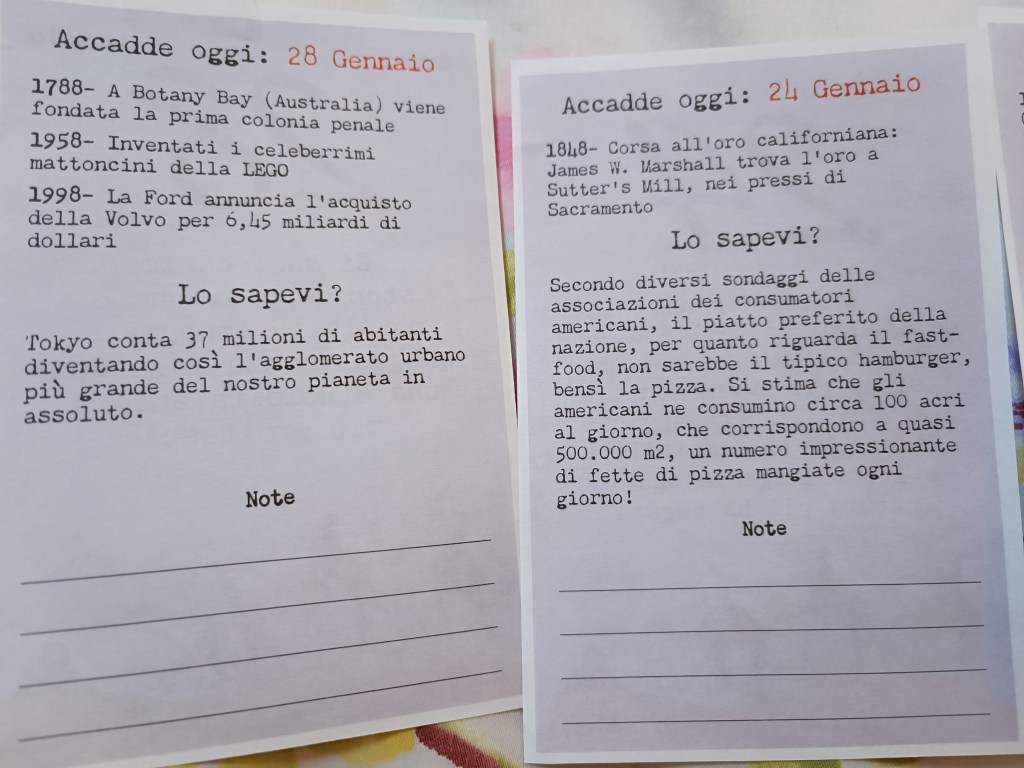 Accadde oggi: 28 Gennaio
1788- A Botany Bay (Australia) viene
fondata la prima colonia penale
1958- Inventati i celeberrimi
mattoncini della LEGO
1998- La Ford annuncia l'acquisto
della Volvo per 6,45 miliardi di
dollari
Lo sapevi?
Tokyo conta 37 milioni di abitanti
diventando così l'agglomerato urbano
più grande del nostro pianeta in
assoluto.
Note
Accadde oggi: 24 Gennaio
1848- Corsa all'oro californiana:
James W. Marshall trova l'oro a
Sutter's Mill, nei pressi di
Sacramento
Lo sapevi?
Secondo diversi sondaggi delle
associazioni dei consumatori
americani, il piatto preferito della
nazione, per quanto riguarda il fast-
food, non sarebbe il tipico hamburger,
bensì la pizza. Si stima che gli
americani ne consumino circa 100 acri
al giorno, che corrispondono a quasi
500.000 m2, un numero impressionante
di fette di pizza mangiate ogni
giorno!
Note